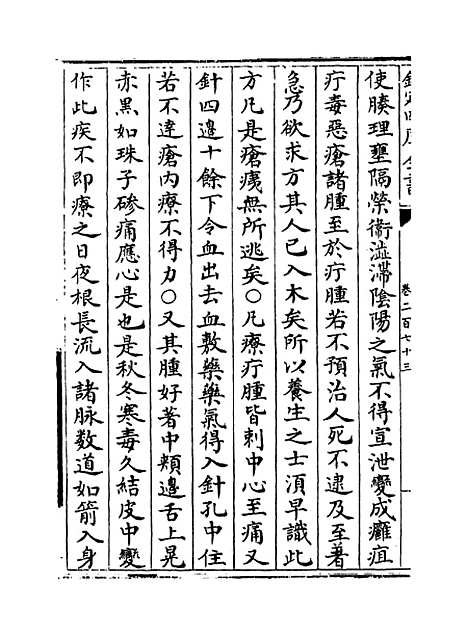 欽定四庫全書
卷二百七十三
使腠理壅隔榮衞澁滯陰陽之氣不得宣泄變成癰疽
疔毒惡瘡諸腫至於疔腫若不預治人死不逮及至著
急乃欲求方其人已入木矣所以養生之士湏早識此
方凡是瘡痍無所逃矣○凡療疔腫皆刺中心至痛又
針四邊十餘下令血出去血敷藥藥氣得入針孔中佳
若不達瘡内療不得力○又其腫好著中頰邊舌上晃
赤黑如珠子磣痛應心是也是秋冬寒毒久結皮中變
作此疾不即療之日夜根長流入諸脉数道如箭入身